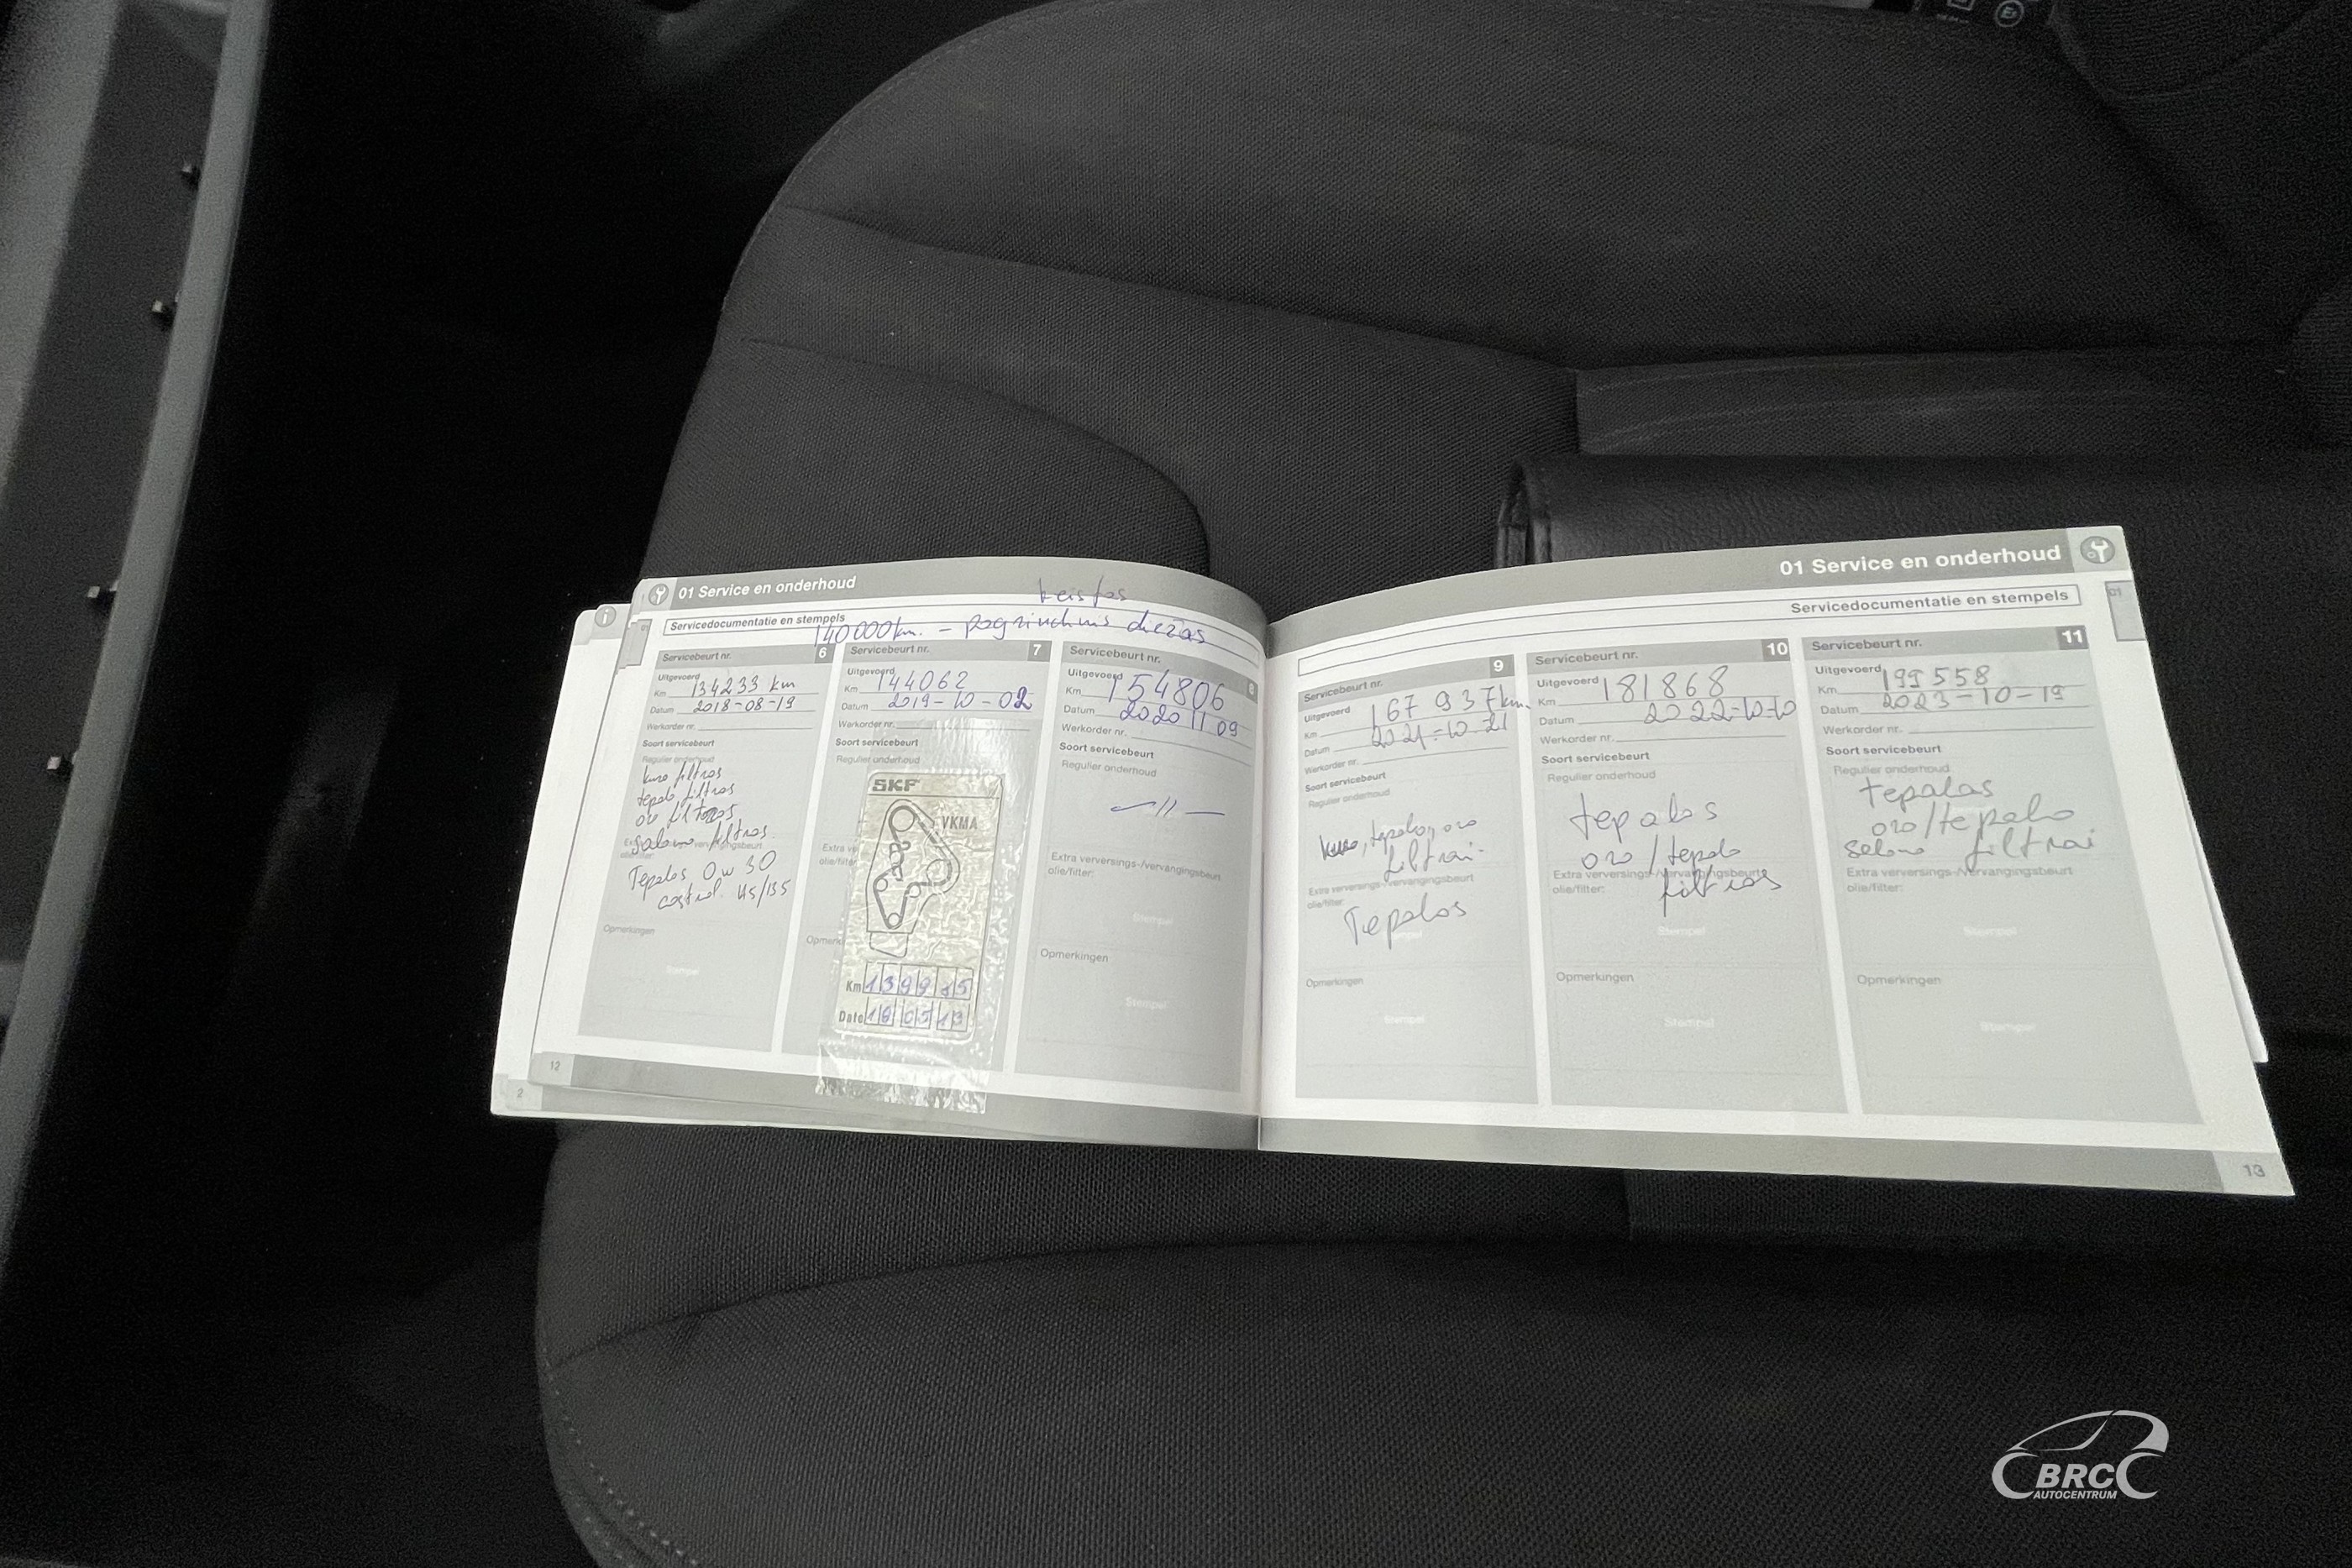 01 Service en onderhoud
keistas
Servicedocumentatie en stempels
140000km. - pagrindinis diržas
Servicebeurt nr. 6
Uitgevoerd
Km 134233 km
Datum 2018-08-19
Werkorder nr.
Soort servicebeurt
Regulier onderhoud
kuro filtras
tepalo filtras
oro filtras
salono filtras
olie/filter:
Tepalas 0w30
castrol
Opmerkingen
Stempel
Servicebeurt nr. 7
Uitgevoerd
Km 144062
Datum 2019-10-02
Werkorder nr.
Soort servicebeurt
Regulier onderhoud
SKF
VKMA
Extra
olie/filter
Km 139985
Date 18 05 13
Servicebeurt nr. 8
Uitgevoerd
Km 154806
Datum 2020 11 09
Werkorder nr.
Soort servicebeurt
Regulier onderhoud
—//—
Extra verversings-/vervangingsbeurt
olie/filter:
Stempel
Opmerkingen
Stempel
12
2
01 Service en onderhoud
Servicedocumentatie en stempels
Servicebeurt nr. 9
Uitgevoerd
Km 167 937km.
Datum 2021-10-21
Werkorder nr.
Soort servicebeurt
Regulier onderhoud
kuro, tepalo, oro
filtrai.
Extra verversings-/vervangingsbeurt
olie/filter:
Tepalas
Opmerkingen
Stempel
Servicebeurt nr. 10
Uitgevoerd
Km 181868
Datum 2022-10-10
Werkorder nr.
Soort servicebeurt
Regulier onderhoud
tepalas
oro/tepalo
Extra verversings-/vervangingsbeurt
olie/filter:
filtras
Stempel
Opmerkingen
Stempel
Servicebeurt nr. 11
Uitgevoerd
Km 199558
Datum 2023-10-19
Werkorder nr.
Soort servicebeurt
Regulier onderhoud
tepalas
oro/tepalo
salono filtrai
Extra verversings-/vervangingsbeurt
olie/filter:
Stempel
Opmerkingen
Stempel
13
BRC
AUTOCENTRUM